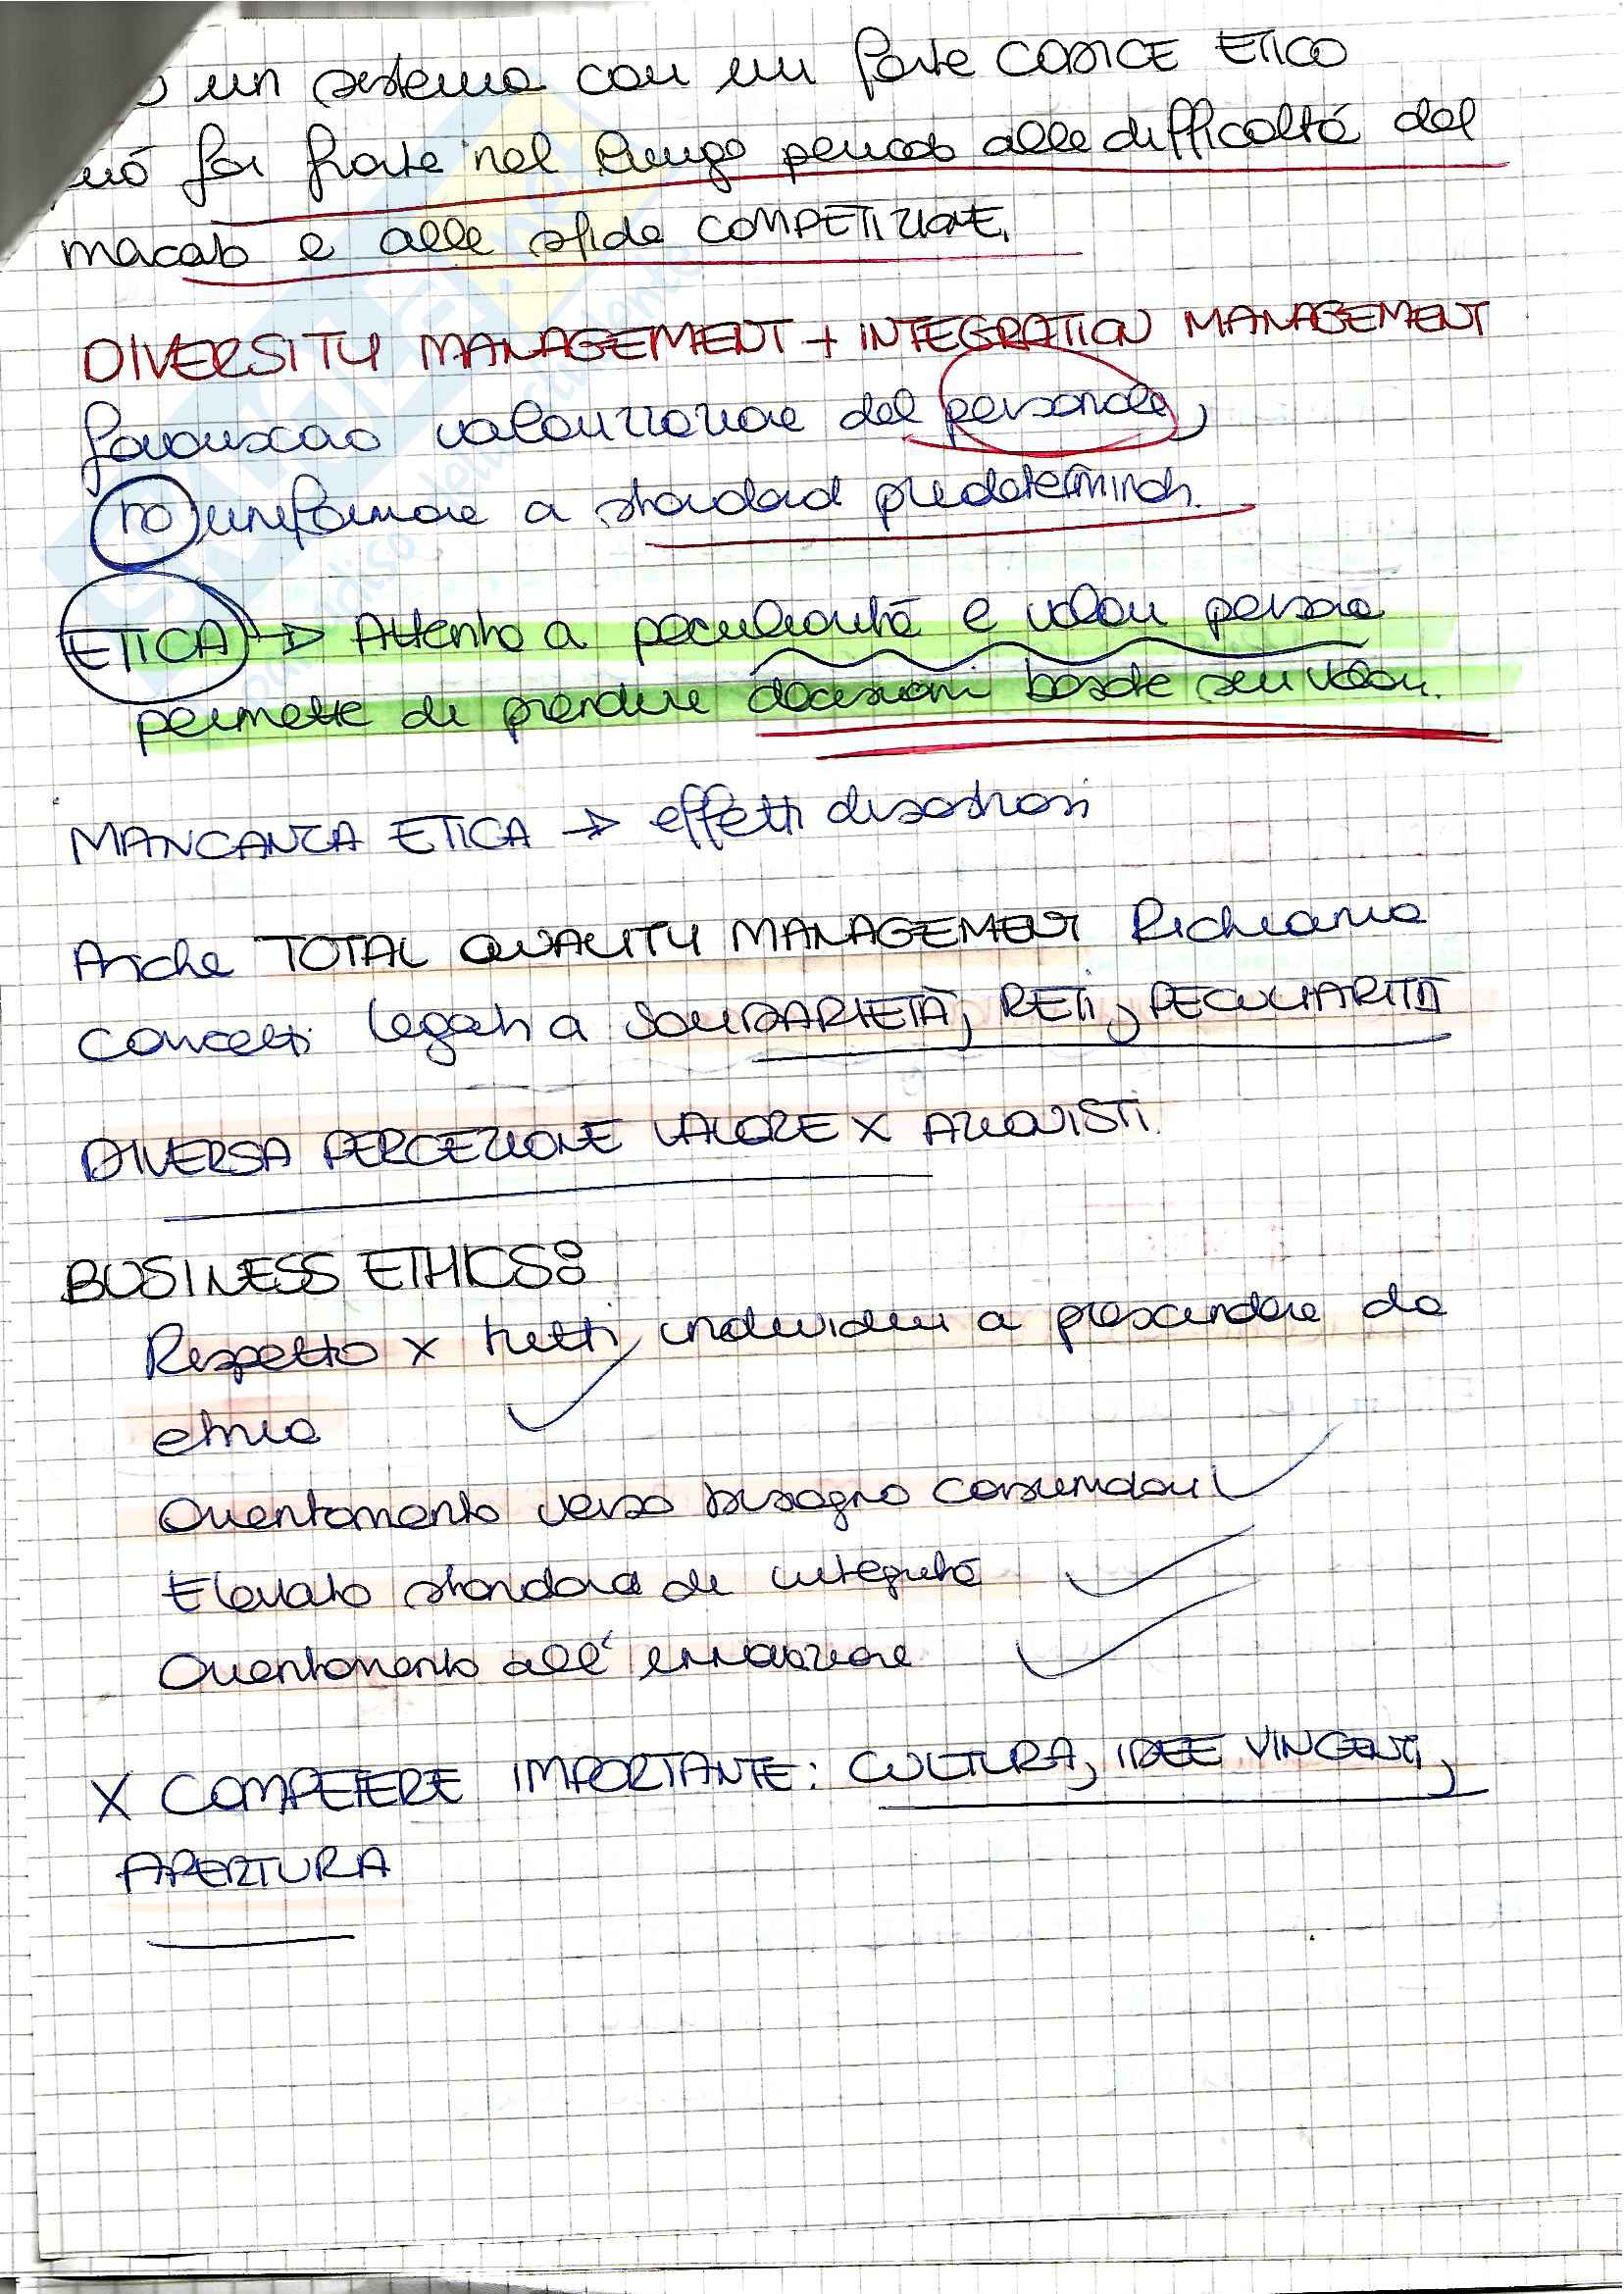 un sistema con un forte CODICE ETICO
può far fronte nel lungo periodo alle difficoltà del
mercato e alle sfide COMPETIZIONE.
DIVERSITY MANAGEMENT + INTEGRATION MANAGEMENT
favoriscono valorizzazione del personale,
no uniformare a standard predeterminati.
ETICA → Attento a peculiarità e valori persona
permette di prendere decisioni basate sui valori.
MANCANZA ETICA → effetti disastrosi
Anche TOTAL QUALITY MANAGEMENT Richiama
concetti legati a SOLIDARIETÀ, RETI, PECULIARITÀ
DIVERSA PERCEZIONE VALORE X AZIONISTI.
BUSINESS ETHICS:
Rispetto x tutti individui a prescindere da
etnia
Orientamento verso bisogno consumatori
Elevato standard di integrità
Orientamento all' innovazione
X COMPETERE IMPORTANTE: CULTURA, IDEE VINCENTI,
APERTURA